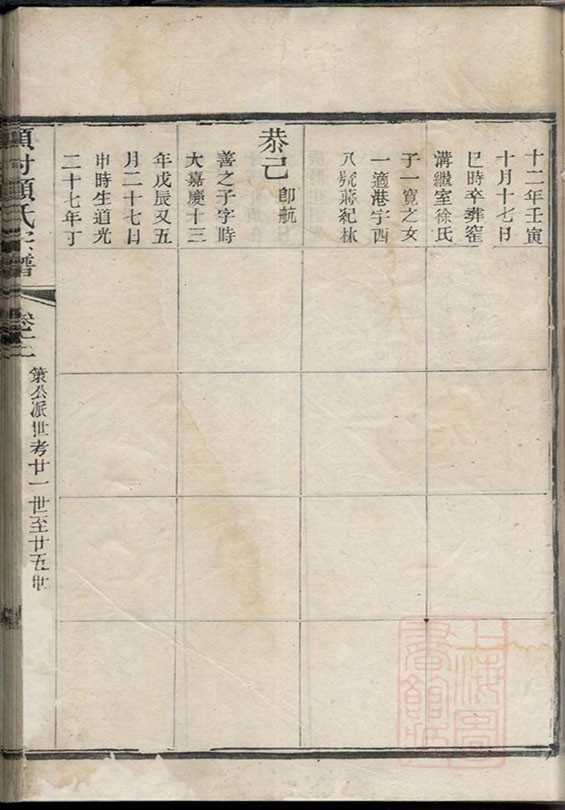 十二年壬寅
十月十七日
巳時卒葬窑
溝繼室徐氏
子一寬之女
一適港字西
八號蔣紀林
恭己 卽航
善之子字時
大嘉慶十三
年戊辰又五
月二十七日
申時生道光
二十七年丁
顧氏宗譜
卷十二
策公派世考廿一世至廿五世
上海圖書館藏